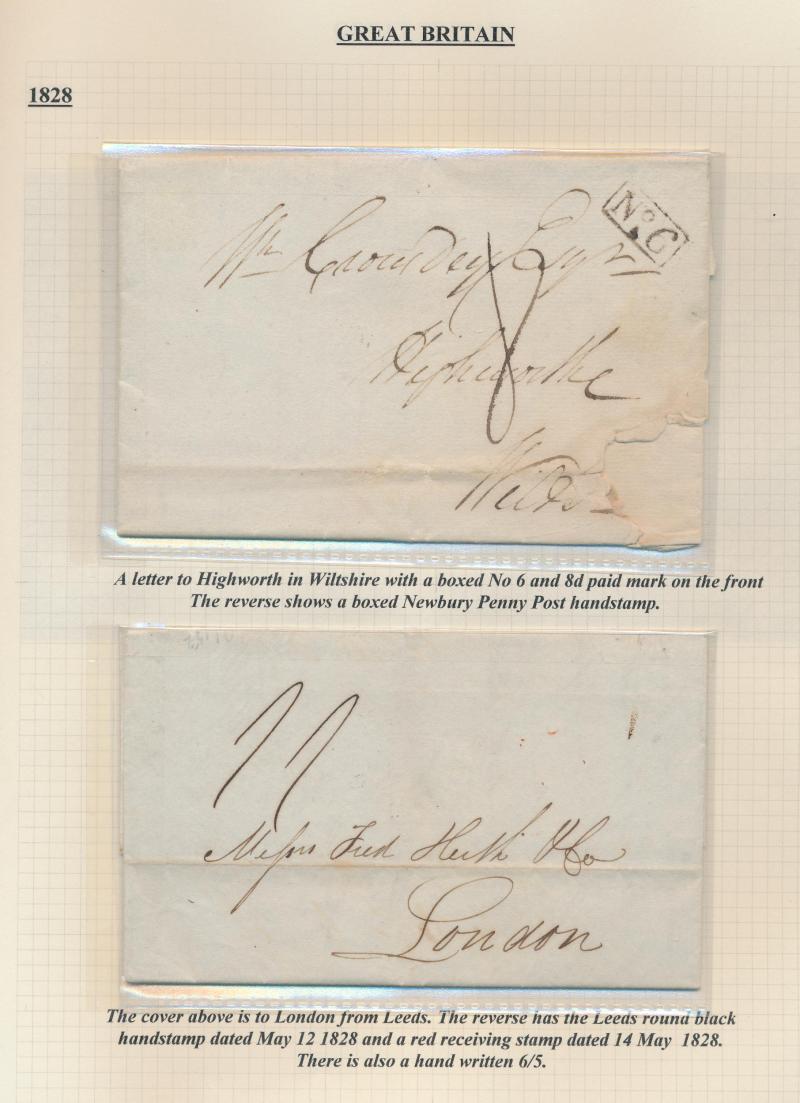 GREAT BRITAIN
1828
No 6
Wm Crowdy Esqr
8
Highworth
Wilts
A letter to Highworth in Wiltshire with a boxed No 6 and 8d paid mark on the front
The reverse shows a boxed Newbury Penny Post handstamp.
11
Messrs Fred Huth & Co
London
The cover above is to London from Leeds. The reverse has the Leeds round black
handstamp dated May 12 1828 and a red receiving stamp dated 14 May 1828.
There is also a hand written 6/5.